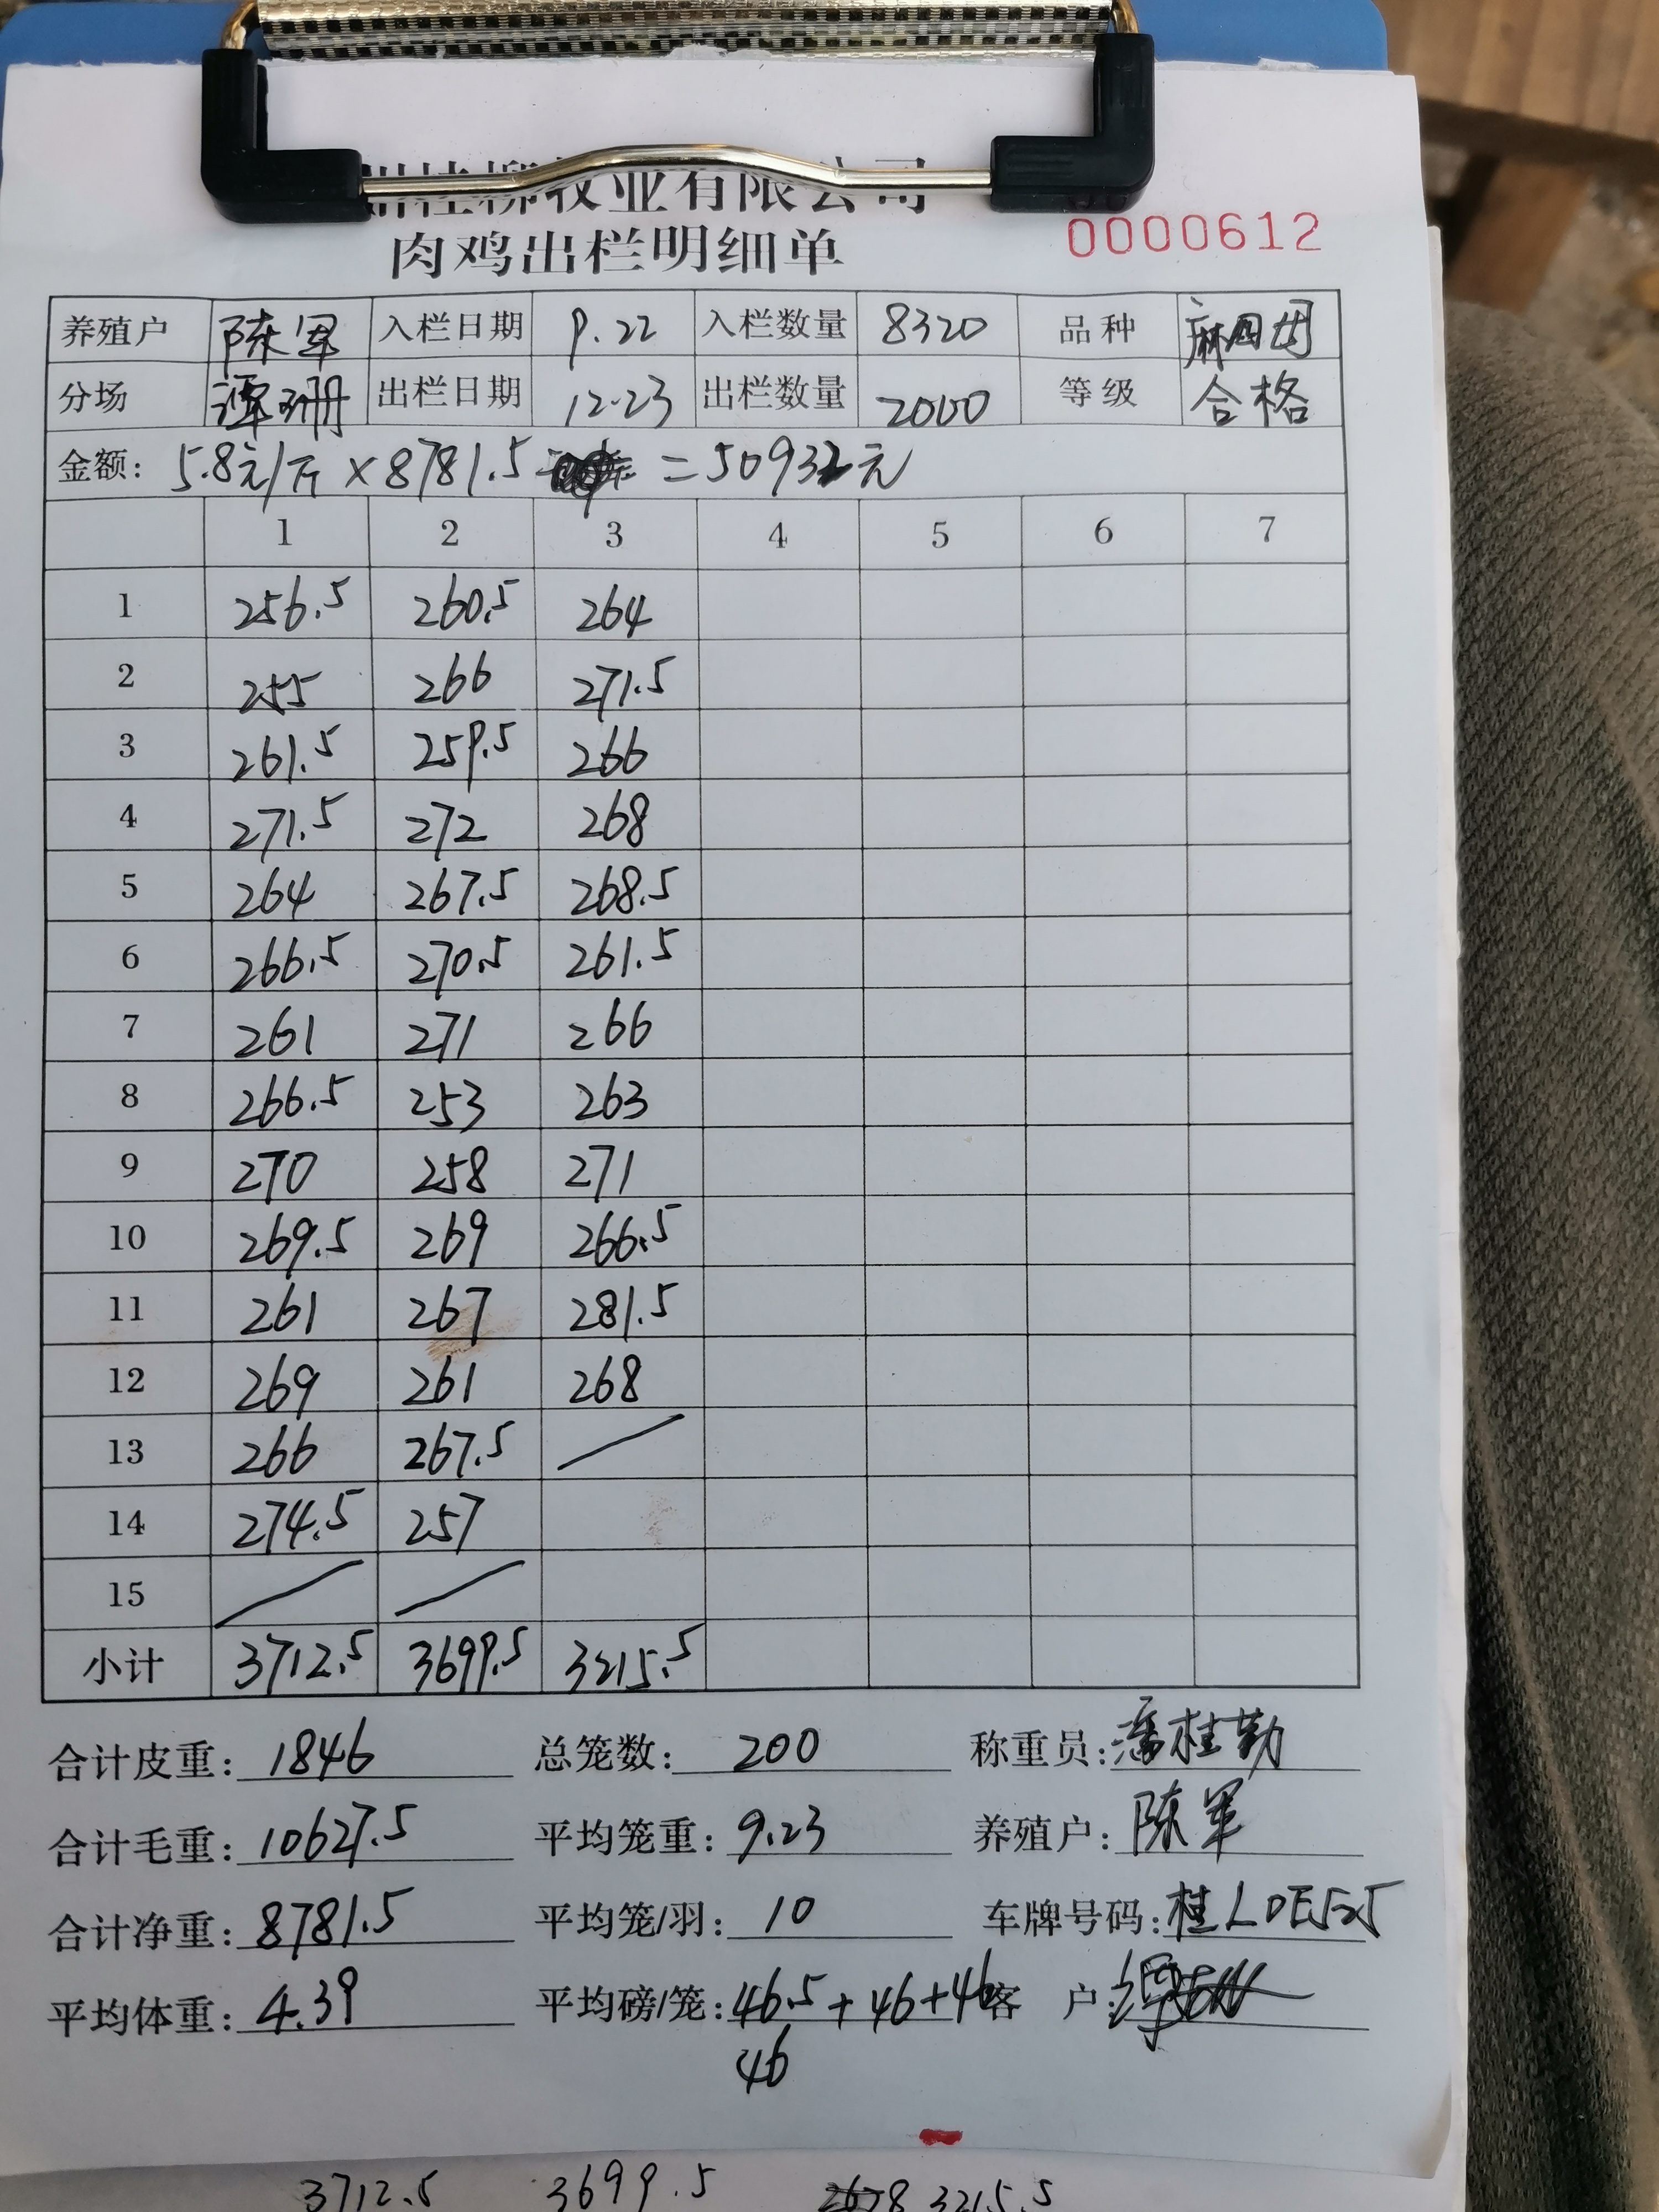 桂柳牧业有限公司
肉鸡出栏明细单
0000612
养殖户 陈军 入栏日期 9.22 入栏数量 8320 品种
分场 出栏日期 12.23 出栏数量 2000 等级 合格
金额: 5.8元/斤 ×8781.5 =50932元
1 2 3 4 5 6 7
1 256.5 260.5 264
2 255 266 271.5
3 261.5 259.5 266
4 271.5 272 268
5 264 267.5 268.5
6 266.5 270.5 261.5
7 261 271 266
8 266.5 253 263
9 270 258 271
10 269.5 269 266.5
11 261 267 281.5
12 269 261 268
13 266 267.5
14 274.5 257
15
小计 3712.5 3699.5 3215.5
合计皮重: 1846 总笼数: 200 称重员: 潘桂勤
合计毛重: 10627.5 平均笼重: 9.23 养殖户: 陈军
合计净重: 8781.5 平均笼/羽: 10 车牌号码: 桂L0E525
平均体重: 4.39 平均磅/笼: 46.5+46+46 客 户:
46
3712.5 3699.5 3215.5